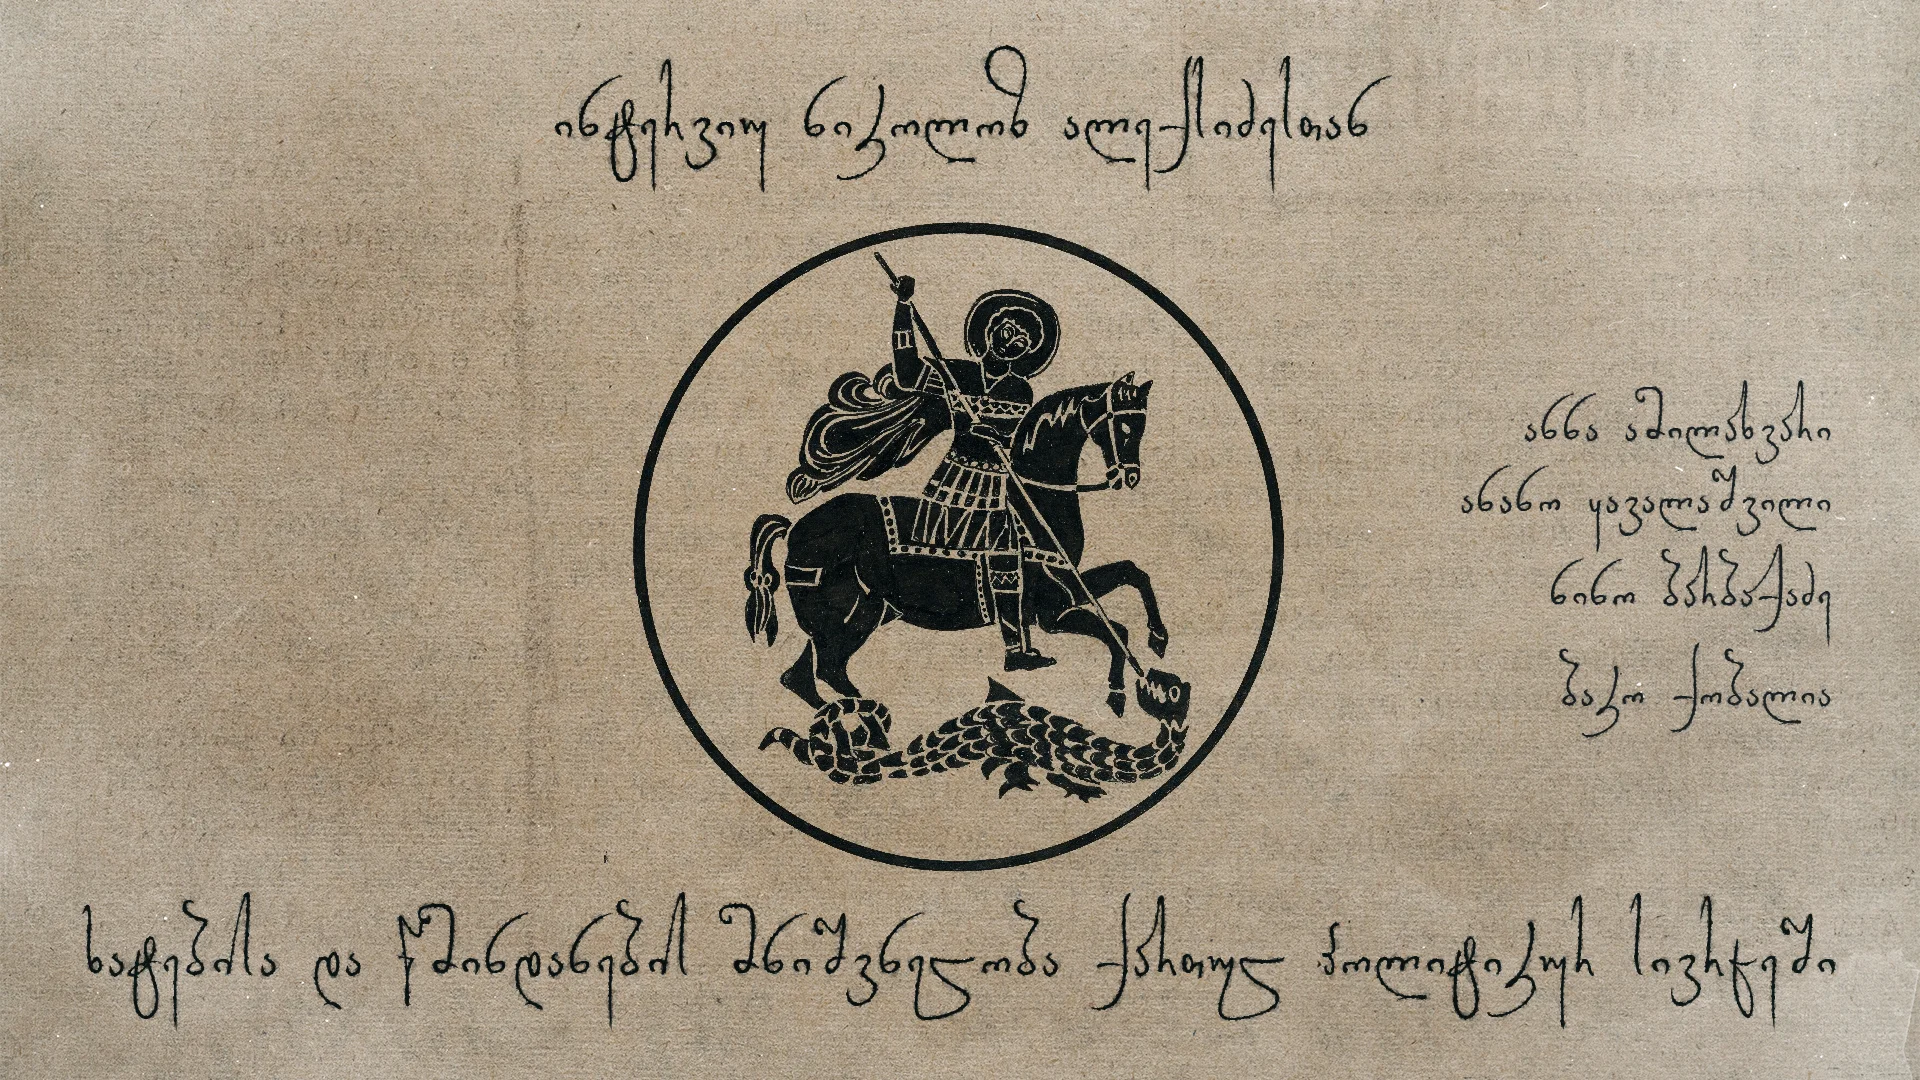 ინტერვიუ ნიკოლოზ ალექსიძესთან
ანნა ამილახვარი
ანანო ყავალაშვილი
ნინო ბარბაქაძე
ბაკო ქობალია
ხატებისა და წმინდანების მნიშვნელობა ქართულ პოლიტიკურ სივრცეში